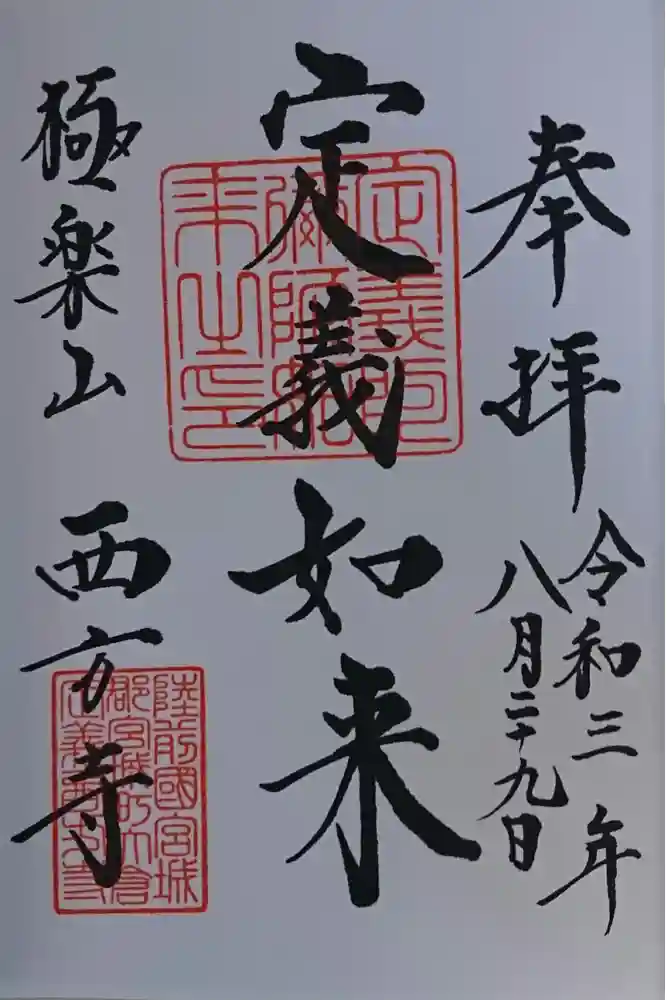 奉拝
令和三年
八月二十九日
定義如来
極楽山 西方寺
陸前國宮城
郡宮城町大倉
定義西方寺